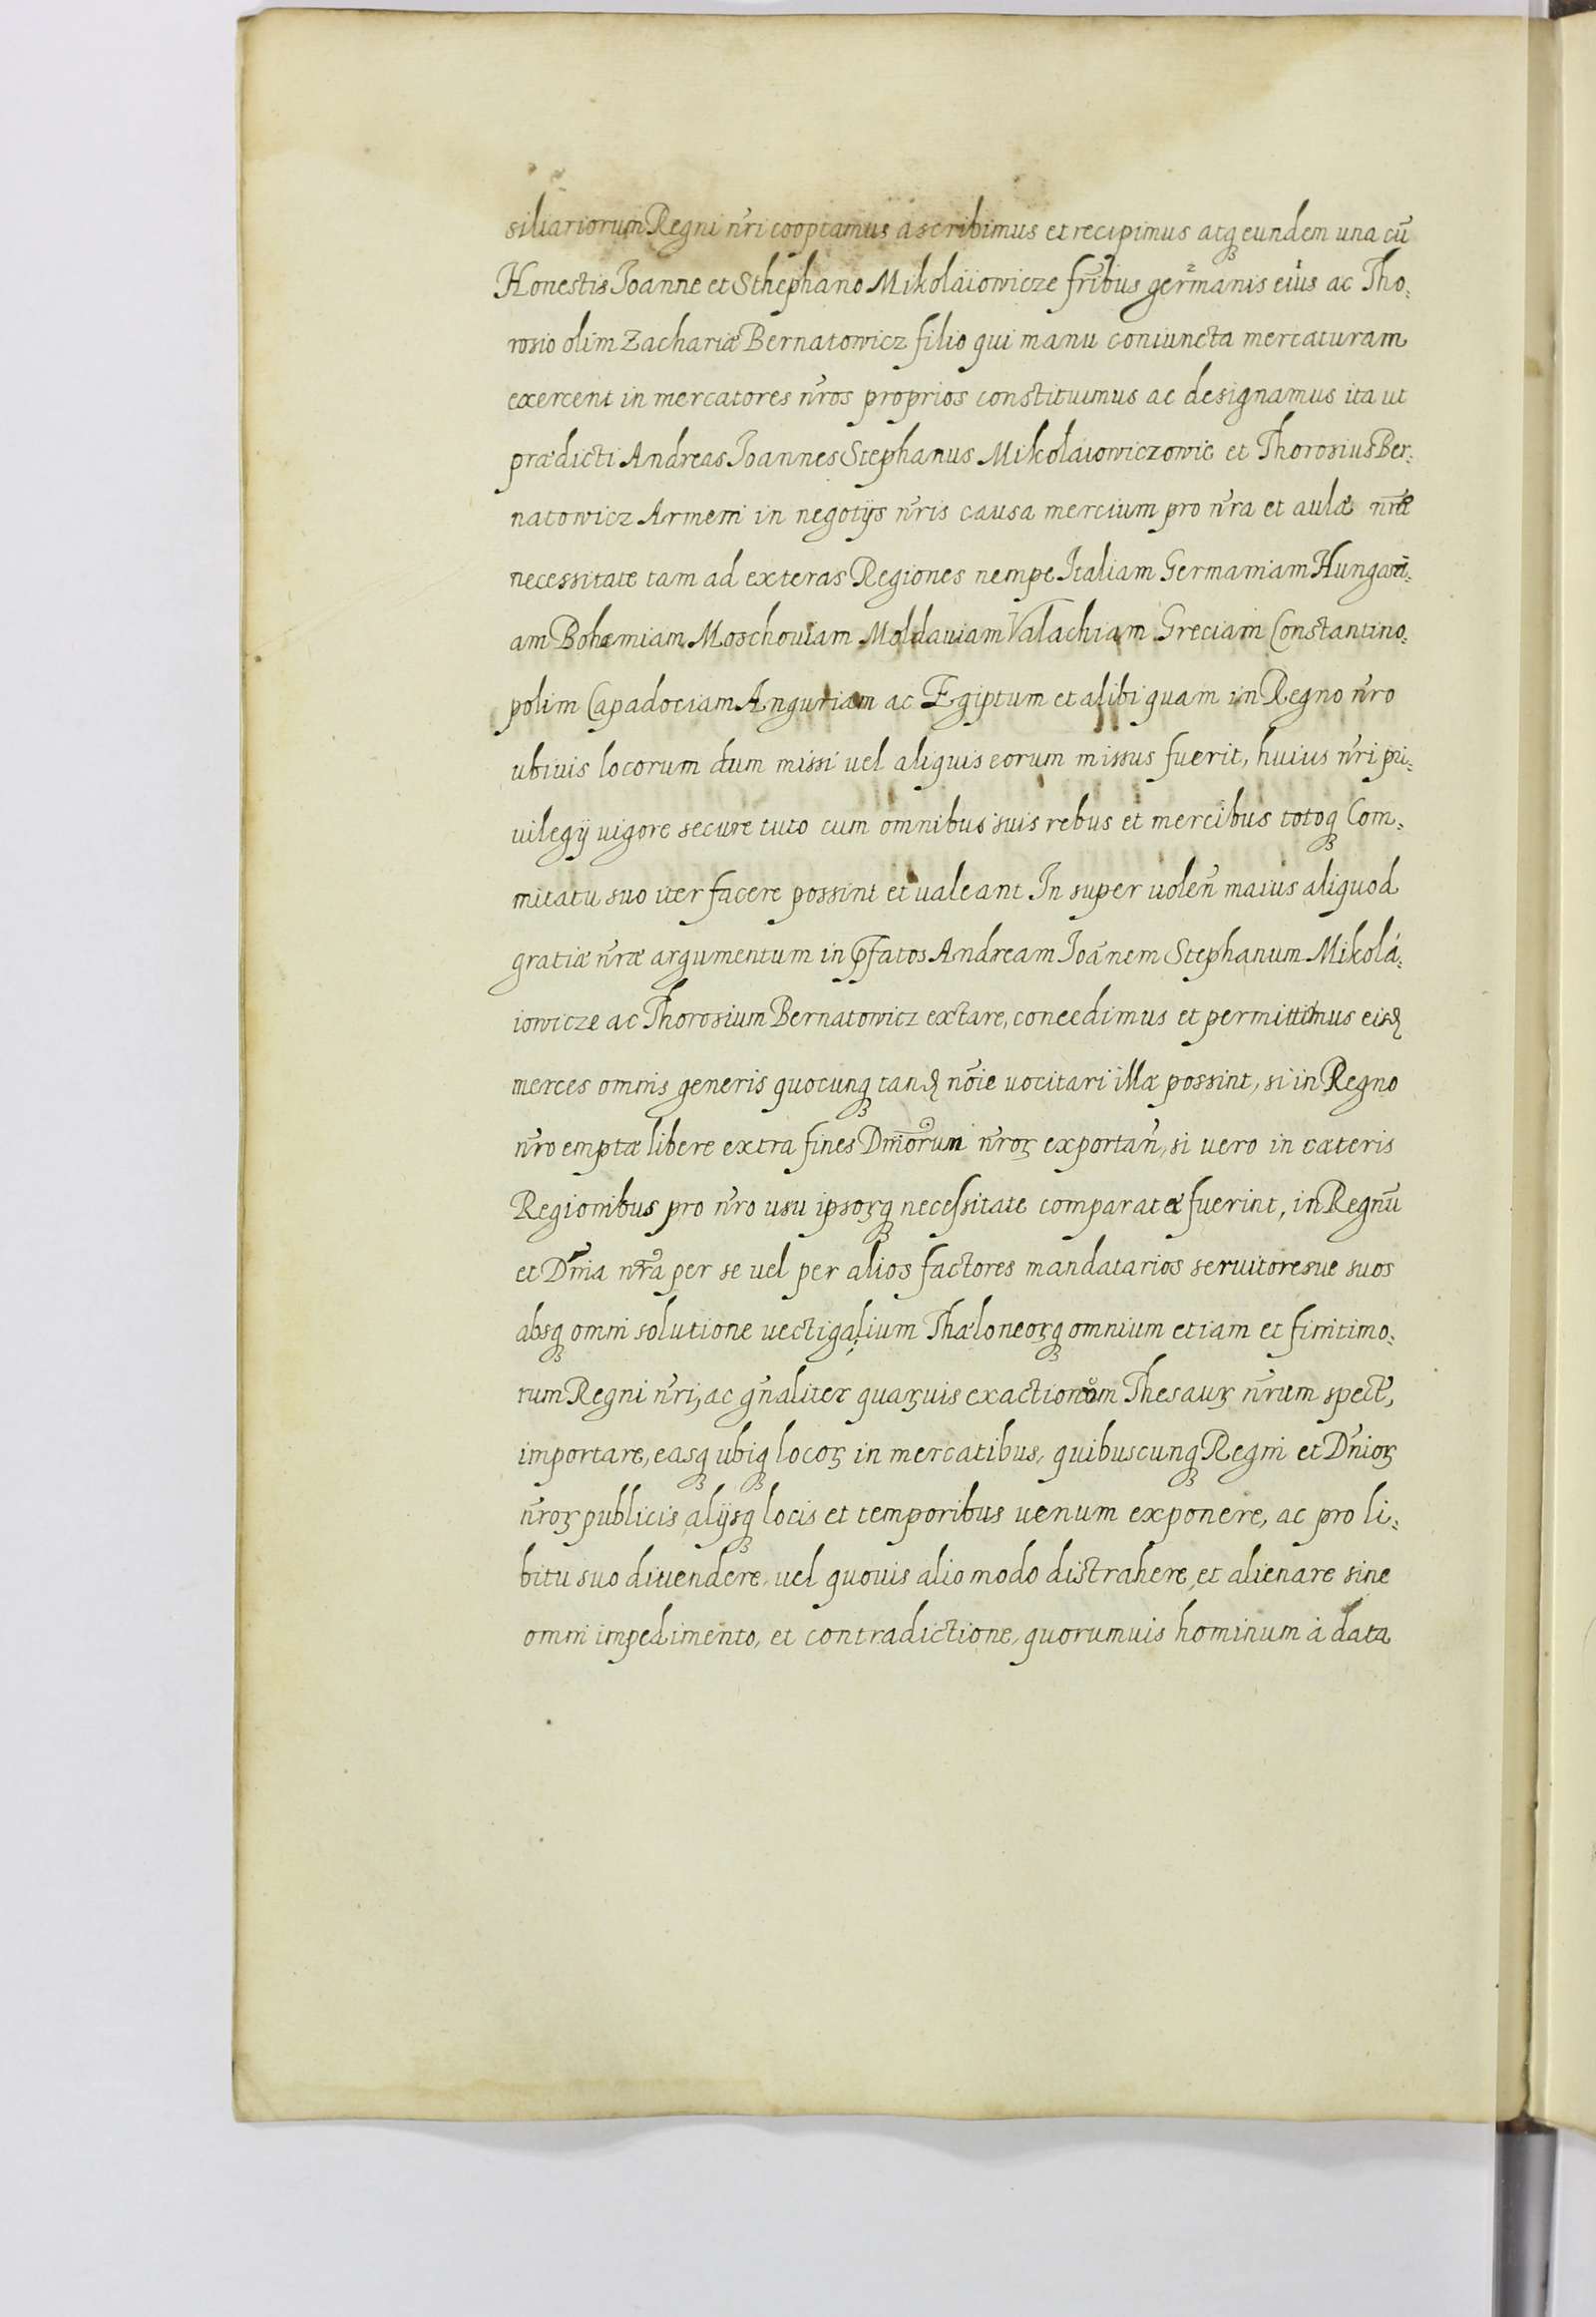 siliariorum Regni nr̃i cooptamus ascribimus et recipimus atq₃ eundem una cũ
Honestis Joanne et Sthephano Mikolaiowicze fr̃ibus germanis eius ac Tho:
rosio olim Zachariæ Bernatowicz filio qui manu coniuncta mercaturam
exercent in mercatores nr̃os proprios constituimus ac designamus ita ut
prædicti Andreas Joannes Stephanus Mikolaiowiczowie et Thorosius Ber:
natowicz Armeni in negotijs nr̃is causa mercium pro nr̃a et aulæ nr̃æ
necessitate tam ad exteras Regiones nempe Italiam Germaniam Hungari:
am Bohæmiam Moschouiam Moldauiam Valachiam Greciam Constantino:
polim Capadociam Anguriam ac Egiptum et alibi quam in Regno nr̃o
ubiuis locorum dum missi uel aliquis eorum missus fuerit, huius nr̃i pri:
uilegij uigore secure tuto cum omnibus suis rebus et mercibus totoq₃ Com:
mitatu suo iter facere possint et ualeant In super uoleñ maius aliquod
gratiæ nr̃æ argumentum in p̃fatos Andream Joãnem Stephanum Mikola:
iowicze ac Thorosium Bernatowicz extare, concedimus et permittimus eisd
merces omnis generis quocunq₃ tand nõie uocitari illæ possint, si in Regno
nr̃o emptæ libere extra fines Dm̃iorum nr̃oꝝ exportañ, si uero in cæteris
Regionibus pro nr̃o usu ipsoꝝq₃ necessitate comparatæ fuerint, in Regnũ
et Dm̃ia nr̃a per se uel per alios factores mandatarios seruitoresue suos
absq₃ omni solutione uectigalium Thæloneoꝝq₃ omnium etiam et finitimo:
rum Regni nr̃i, ac gñaliter quaꝝuis exactionum Thesauꝝ nr̃um spect̃,
importare, easq₃ ubiq₃ locoꝝ in mercatibus, quibuscunq₃ Regni et Dñioꝝ
nr̃oꝝ publicis alijsq₃ locis et temporibus uenum exponere, ac pro li:
bitu suo diuendere, uel quouis alio modo distrahere, et alienare sine
omni impedimento, et contradictione, quorumuis hominum à data